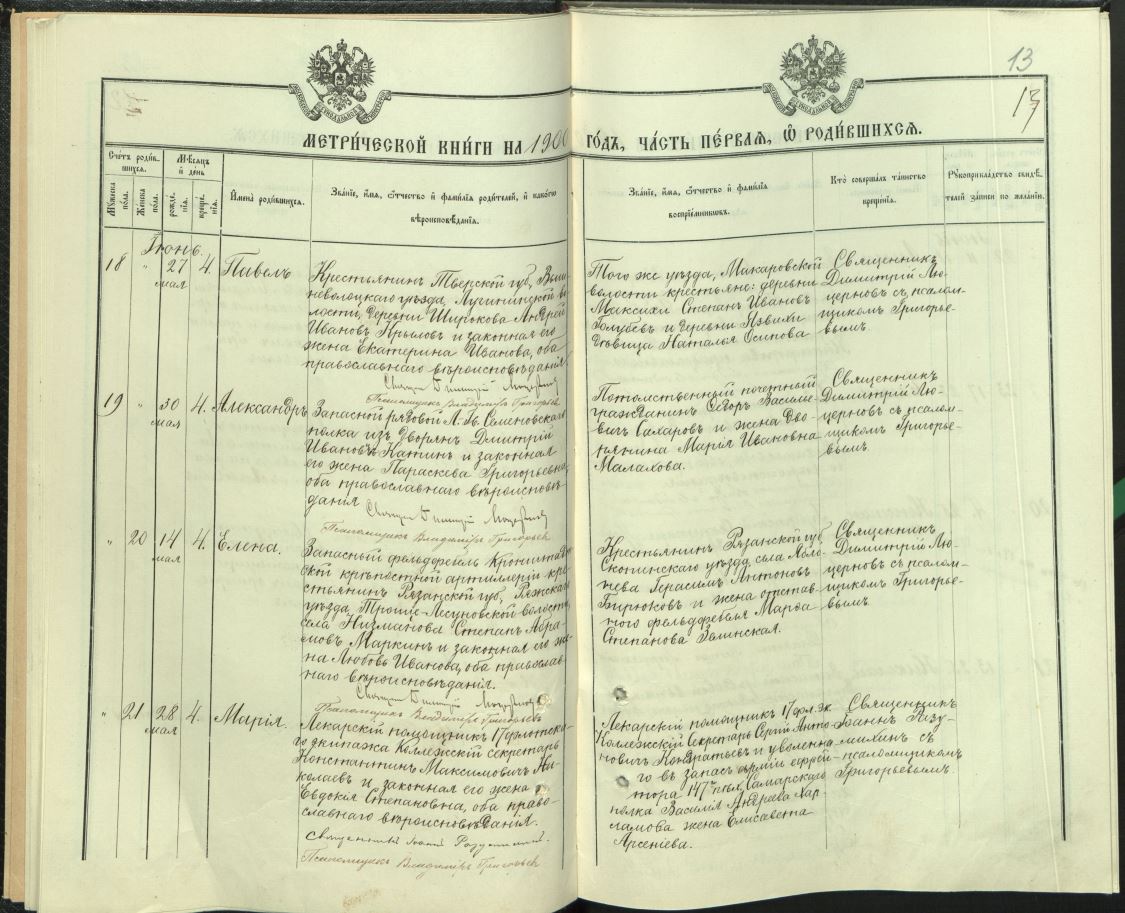 13
13
МЕТРИ́ЧЕСКОЙ КНИ́ГИ НА 1900 ГО́ДЪ, ЧА́СТЬ ПЕ́РВАЯ, Ѡ҆ РОДИ́ВШИХСЯ.
Сче́тъ роди́вшихся.
Мѣ́сяцъ и҆ де́нь
Мꙋ́жеска по́ла.
Же́нска по́ла.
рожде́нїѧ.
креще́нїѧ.
И҆мена̀ роди́вшихся.
Зва́нїе, и҆́мя, ѻ҆́тчество и҆ фами́лїя роди́телей, и҆ како́гѡ
вѣроисповѣ́данїя.
Зва́нїе, и҆́мя, ѻ҆́тчество и҆ фами́лїя
воспрїе́мниковъ.
Кто̀ соверша́лъ та́инство
креще́нїя.
Рꙋкоприкла́дство свидѣ́-
телей за́писи по жела́нїю.
Іюнь.
18 " 27 мая 4. Павелъ
Крестьянинъ Тверской губ, Выш-
неволоцкаго уѣзда, Лугининской во-
лости, деревни Широкова Андрей
Ивановъ Крыловъ и законная его
жена Екатерина Иванова, оба
православнаго вѣроисповѣданія.
Псаломщикъ Владиміръ Григорьевъ
Того же уѣзда, Макаровской
волости крестьяне: деревни
Максихи Степанъ Ивановъ
Голубевъ и деревни Язвихи
дѣвица Наталья Осипова
Священникъ
Димитрій Лю-
церновъ съ псалом-
щикомъ Григорье-
вымъ.
19 " 30 мая 4. Александръ
Запасной рядовой Л. Гв. Семеновскаго
полка изъ дворянъ Дмитрій
Ивановъ и законная
его жена Параскева Григорьевна,
оба православнаго вѣроисповѣ-
данія
Псаломщикъ Владиміръ Григорьевъ
Потомственный почетный
гражданинъ Ѳедоръ Василье-
вичъ Сахаровъ и жена дво-
рянина Марія Ивановна
Малахова.
Священникъ
Димитрій Лю-
церновъ съ псалом-
щикомъ Григорье-
вымъ.
" 20 14 мая 4. Елена.
Запасный фельдфебель Кронштадт-
ской крѣпостной артиллеріи кре-
стьянинъ Рязанской губ, Ряжскаго
уѣзда, волости,
села Степанъ Абра-
мовъ Маркинъ и законная его же-
на Любовь Иванова, оба православ-
наго вѣроисповѣданія.
Псаломщикъ Владиміръ Григорьевъ
Крестьянинъ Рязанской губ
Скопинскаго уѣзда, села
Герасимъ Антоновъ
Бирюковъ и жена отстав-
ного фельдфебеля Марѳа
Степанова Зелинская.
Священникъ
Димитрій Лю-
церновъ съ псалом-
щикомъ Григорье-
вымъ.
" 21 28 мая 4. Марія.
Лекарскій помощникъ 17 флотска-
го экипажа Коллежскій секретарь
Константинъ Максимовичъ Ни-
колаевъ и законная его жена
Евдокія Степановна, оба право-
славнаго вѣроисповѣданія.
Священникъ
Псаломщикъ Владиміръ Григорьевъ
Лекарскій помощникъ 17 фл. эк.
Коллежскій Секретарь Сергій Анто-
новичъ Кондратьевъ и уволенна-
го въ запасъ арміи ефрей-
тора 147 пѣх. Самарскаго
полка Василія Андреева Хар-
ламова жена Елисавета
Арсеніева.
Священникъ
Іоаннъ Разу-
михинъ съ
псаломщикомъ
Григорьевымъ.